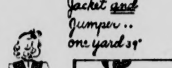 Jacket and
Jumper..
one yard 39"